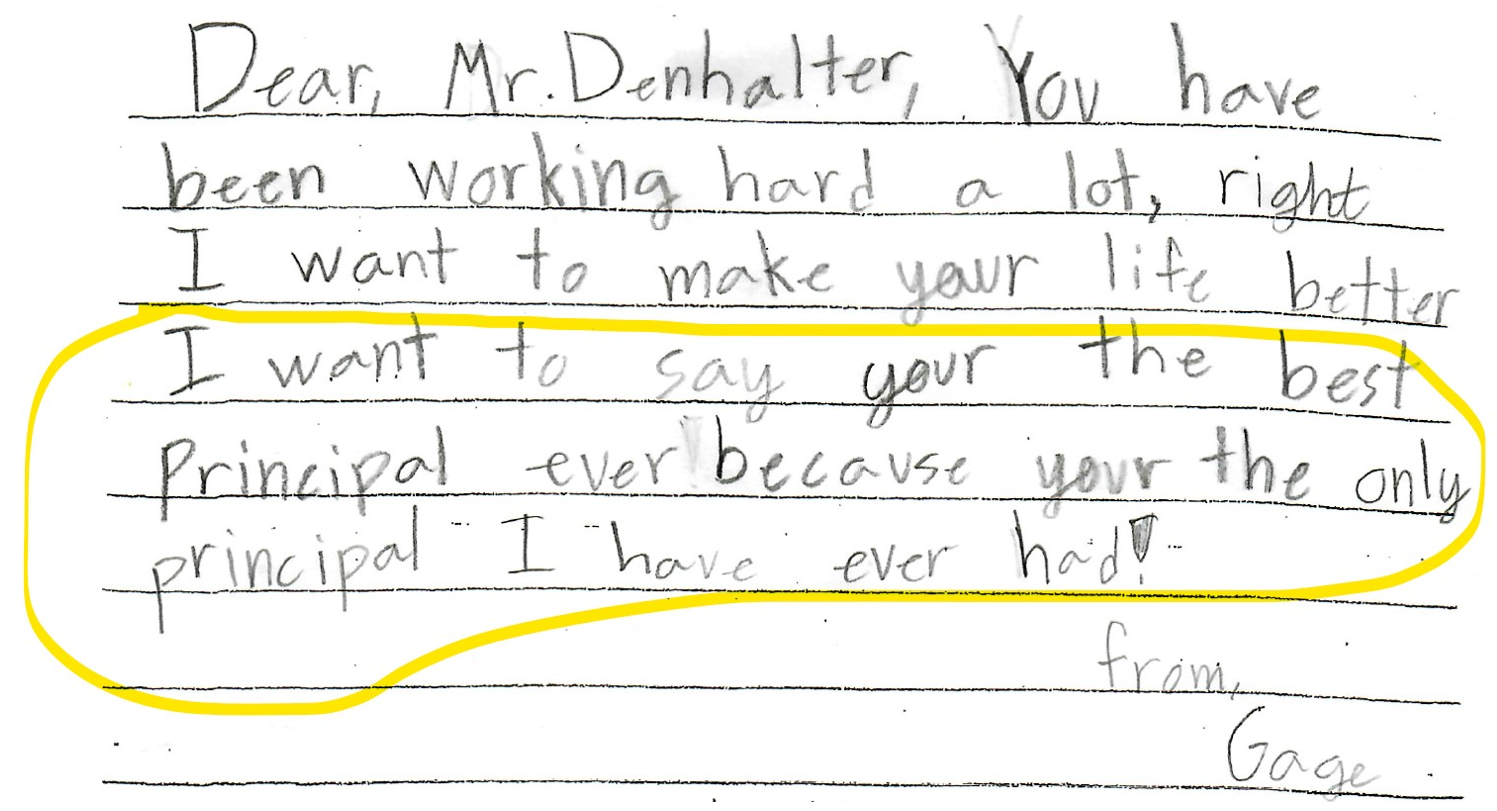 Dear, Mr. Denhalter, You have
been working hard a lot, right
I want to make your life better
I want to say your the best
principal ever because your the only
principal I have ever had!
from,
Gage